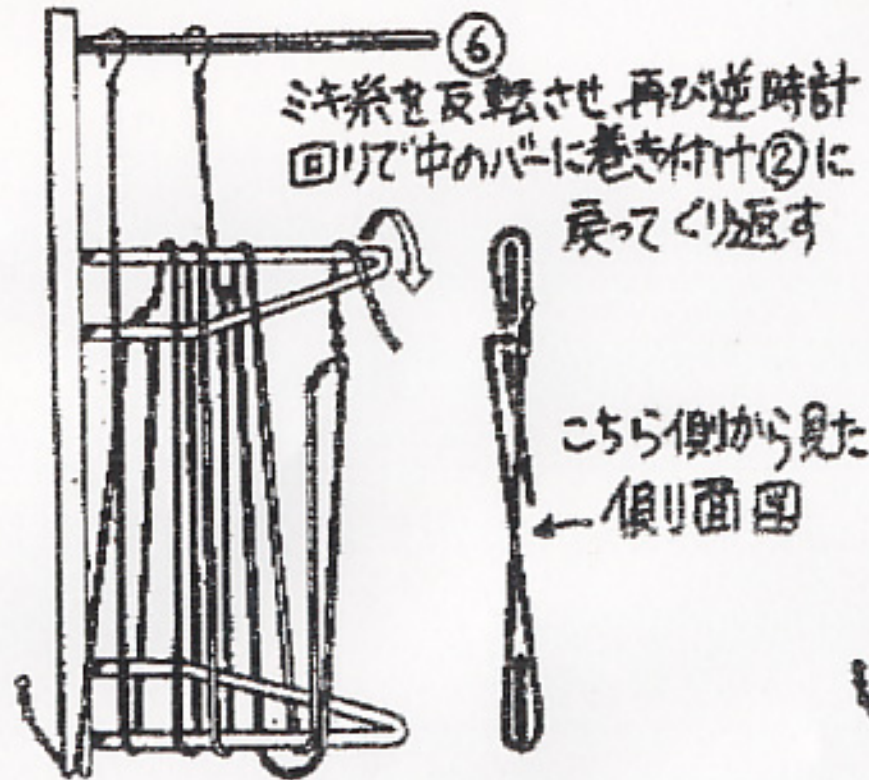 ⑥
ミキ糸を反転させ、再び逆時計
回りで中のバーに巻き付け②に
戻ってくり返す
こちら側から見た
側面図